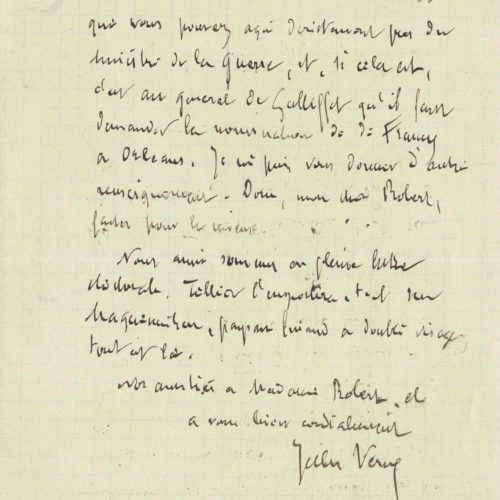 que vous pouvez agir directement près du
ministre de la Guerre, et, si cela est,
c'est au général de Galliffet qu'il faut
demander la nomination de de Francy
à Orléans. Je ne puis vous donner d'autre
renseignement. Donc, mon cher Robert,
faites pour le mieux.
Nous aussi sommes en pleine lutte
électorale. Tellier l'emportera-t-il sur
tout est là.
Nos amitiés à Madame Robert, et
à vous bien cordialement
Jules Verne